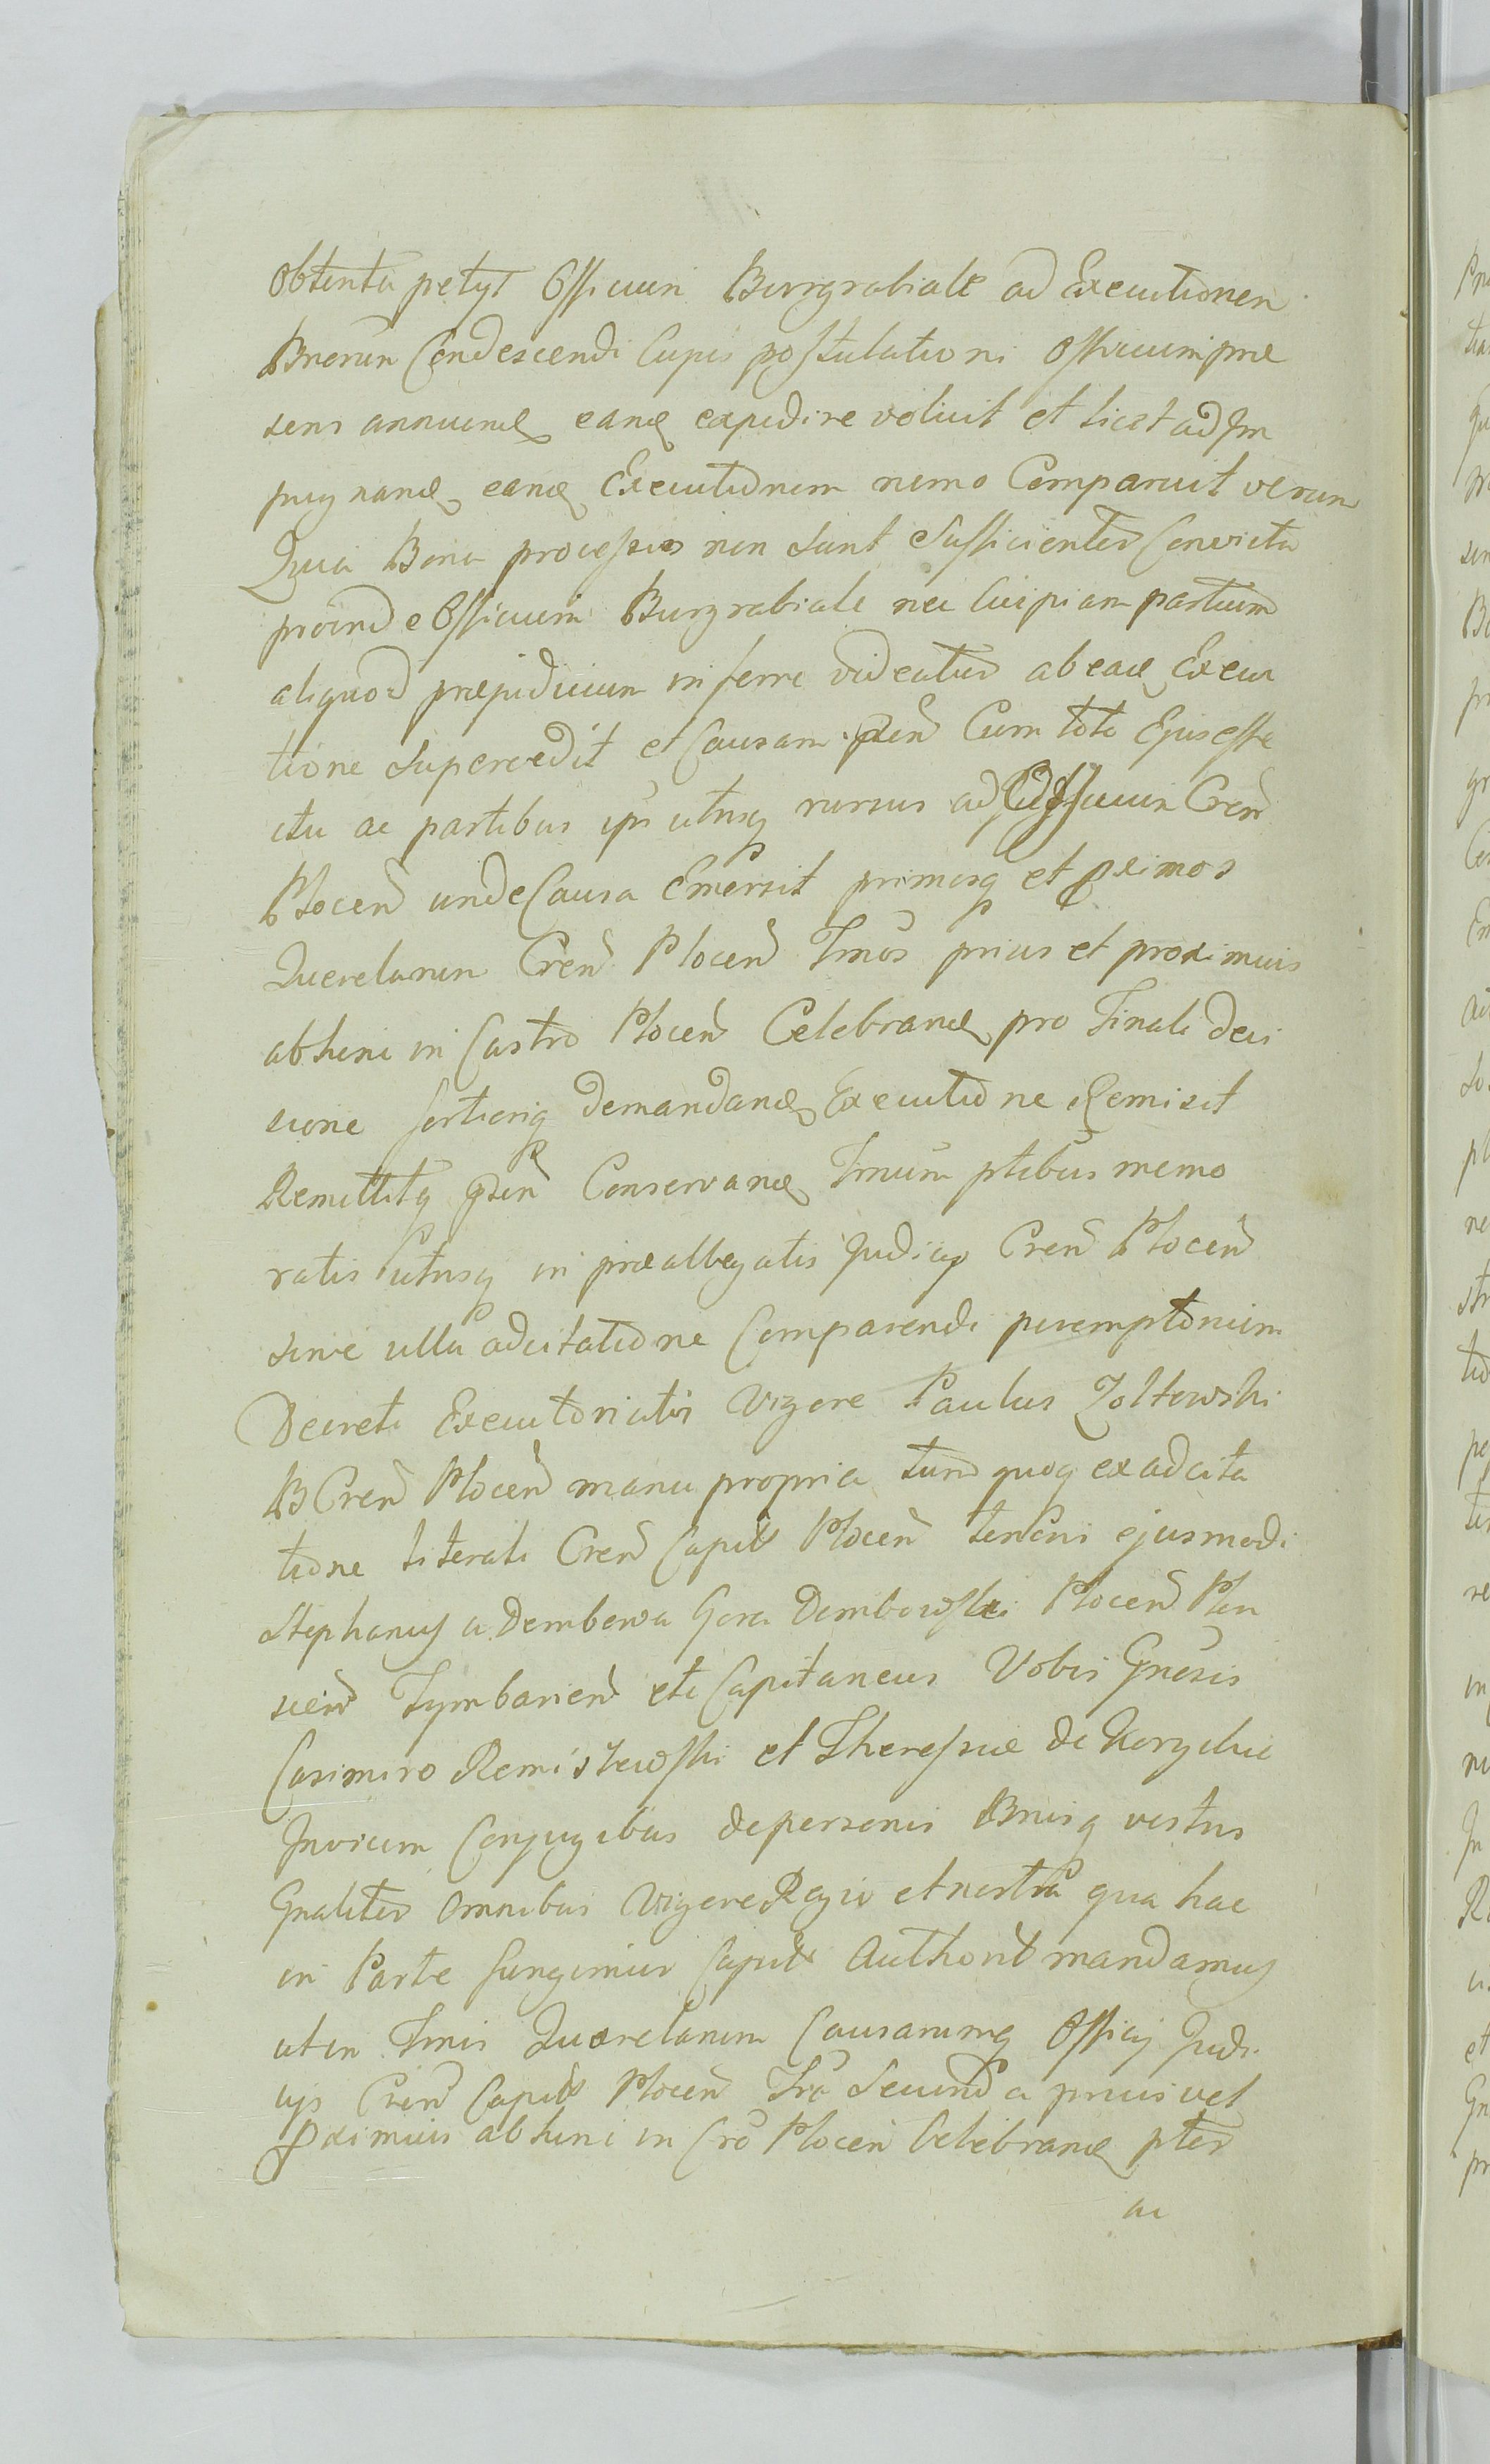 obtenta petyt Officium Burgrabiale ad Executionem
Bnorum Condescendi Cujus postulationi Officium præ
sens annuend eand expedire voluit et licet ad Im
pugnand eand Executionem nemo Comparuit verum
Quia Bona processus non sunt Sufficienter Convicta
proinde Officium Burgrabiale ne Cuipiam partium
aliquod præjudicium inferre videatur ab ead Execu
tione Supersedit et Causam pñtem Cum toto Ejus effe
ctu ac partibus ipsis utrisq rursus ad Officium Cren
Plocen unde Causa Emersit primosq et pximos
Querelarum Cren Plocen Tmos prius et proximius
abhinc in Castro Plocen Celebrand pro Finali deci
sione fortiorig demandand Executione Remisit
Remittitq pñten Conservand Tmum ptibus memo
ratis utrisq in præallegatis Judicijs Cren Plocen
sine ulla adcitatione Comparendi peremptorium
Decreti Executorialis Vigore Paulus Zoltowski
B Cren Plocen manu propria tum quoq ex adcita
tione literali Cren Capitl Plocen tenoris ejusmodi
Stephanus a Dembowa Gora Dembowski Plocen Plon
scen Tymbarien etc Capitaneus Vobis Gnosis
Casimiro Remiszewski et Theressiæ de
Invicem Conjugibus de personis Bnisq vestris
Gnaliter omnibus Vigore Regio et nostra qua hac
in Parte fungimur Capitl Authorit mandamus
ut in Tmis Querelarum Causarumq Officij Judi
cijs Cren Capitl Plocen Fra Secunda prius vel
pximius abhinc in Cro Plocen Celebrand pter
ac